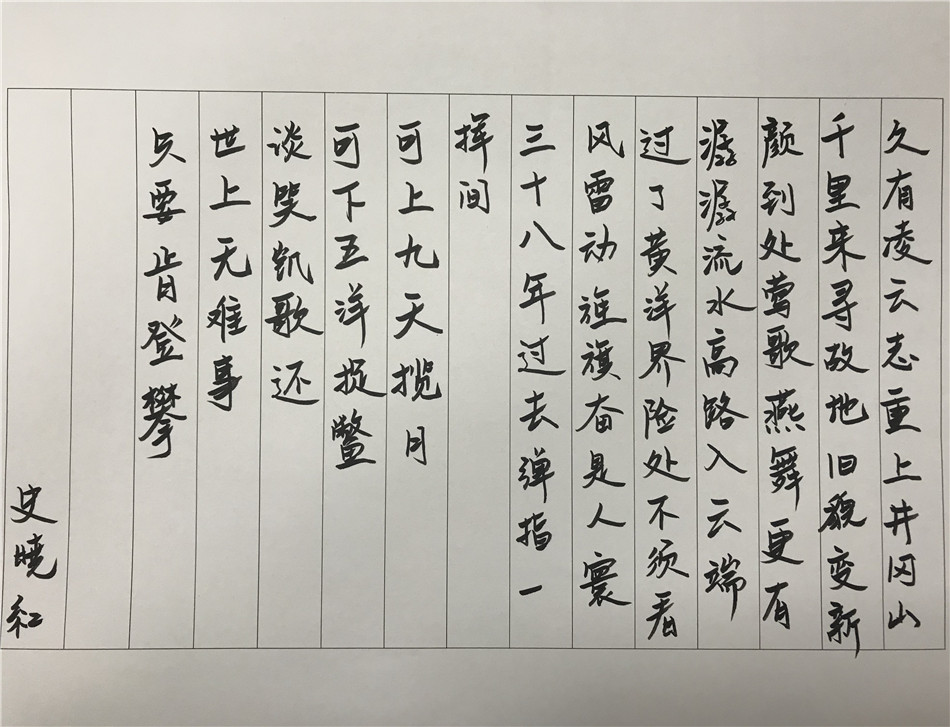 久有凌云志重上井冈山
千里来寻故地旧貌变新
颜到处莺歌燕舞更有
潺潺流水高路入云端
过了黄洋界险处不须看
风雷动旌旗奋是人寰
三十八年过去弹指一
挥间
可上九天揽月
可下五洋捉鳖
谈笑凯歌还
世上无难事
只要肯登攀
史晓红